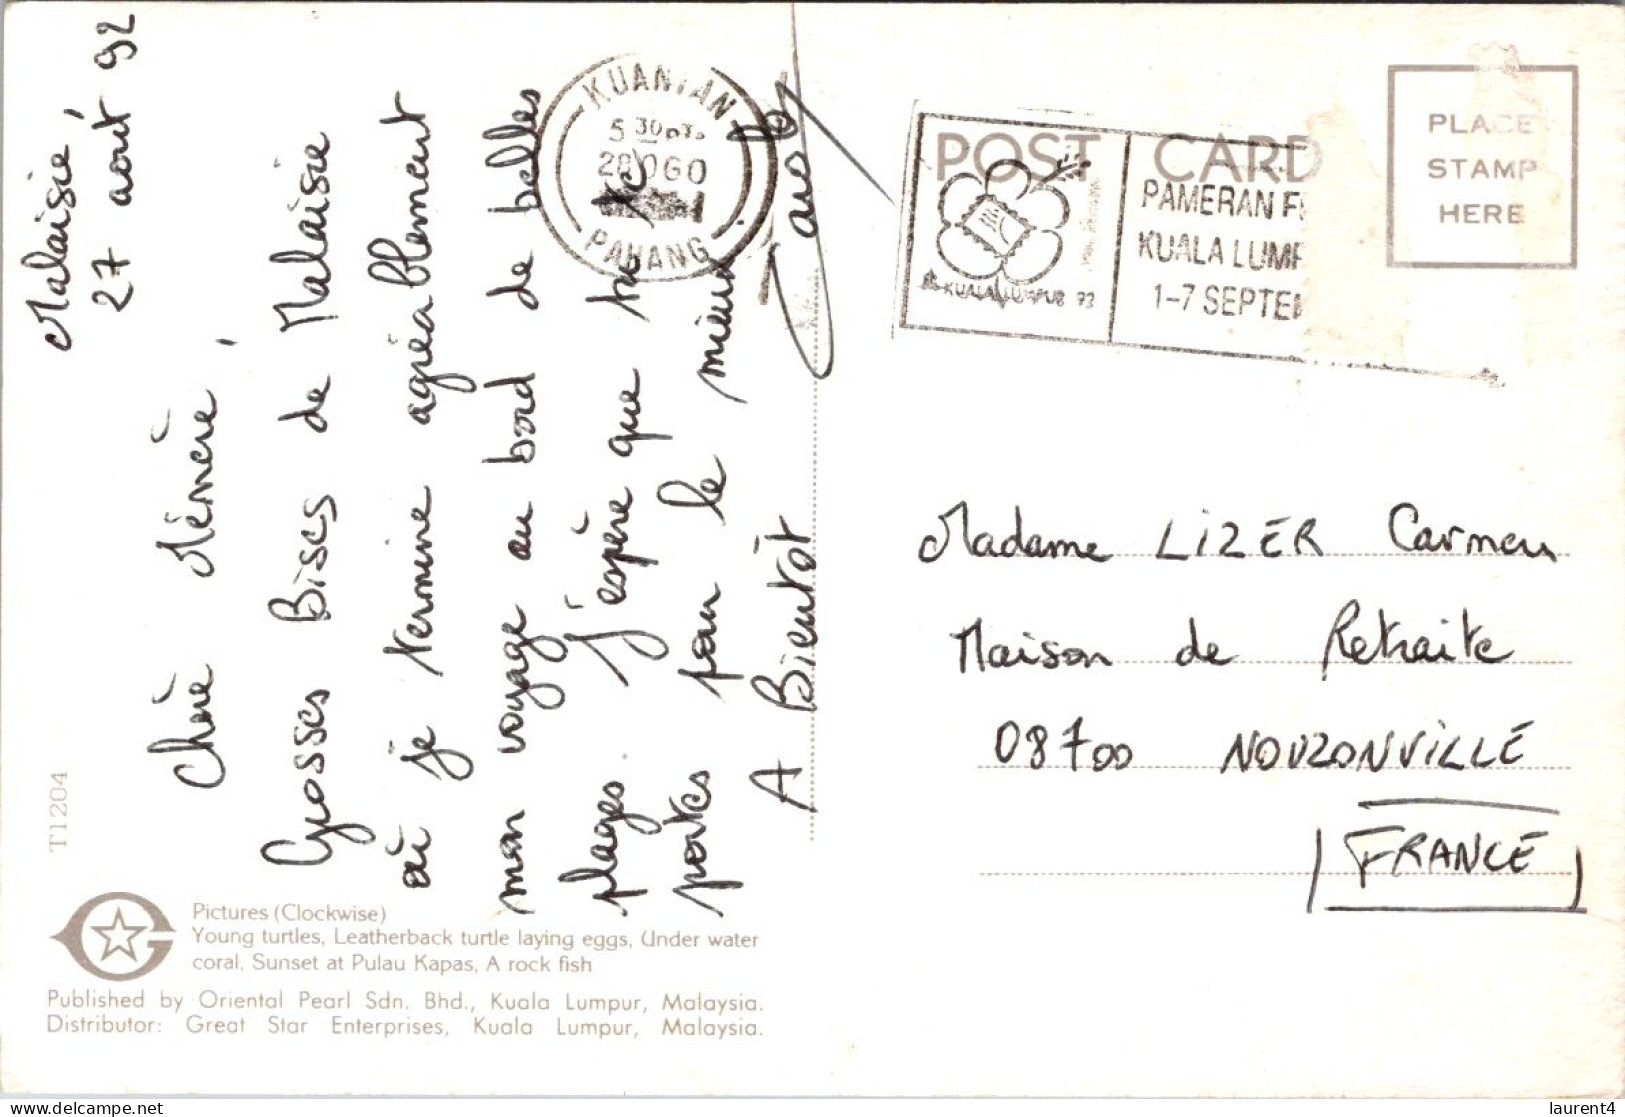 Malaisie,
27 août 92
Chère Mémère,
Grosses Bises de Malaisie
où je termine agréablement
mon voyage au bord de belles
plages. J'espère que tu te
portes pour le mieux
A Bientôt
T1204
Pictures (Clockwise)
Young turtles, Leatherback turtle laying eggs, Under water
coral, Sunset at Pulau Kapas, A rock fish
Published by Oriental Pearl Sdn. Bhd., Kuala Lumpur, Malaysia.
Distributor: Great Star Enterprises, Kuala Lumpur, Malaysia.
KUANTAN
5 30
28 OGO
PAHANG
POST CARD
KUALA LUMPUR 92
PAMERAN
KUALA LUMP
1-7 SEPTE
PLACE
STAMP
HERE
Madame LIZER Carmen
Maison de Retraite
08700 NOUZONVILLE
FRANCE
delcampe.net
laurent4